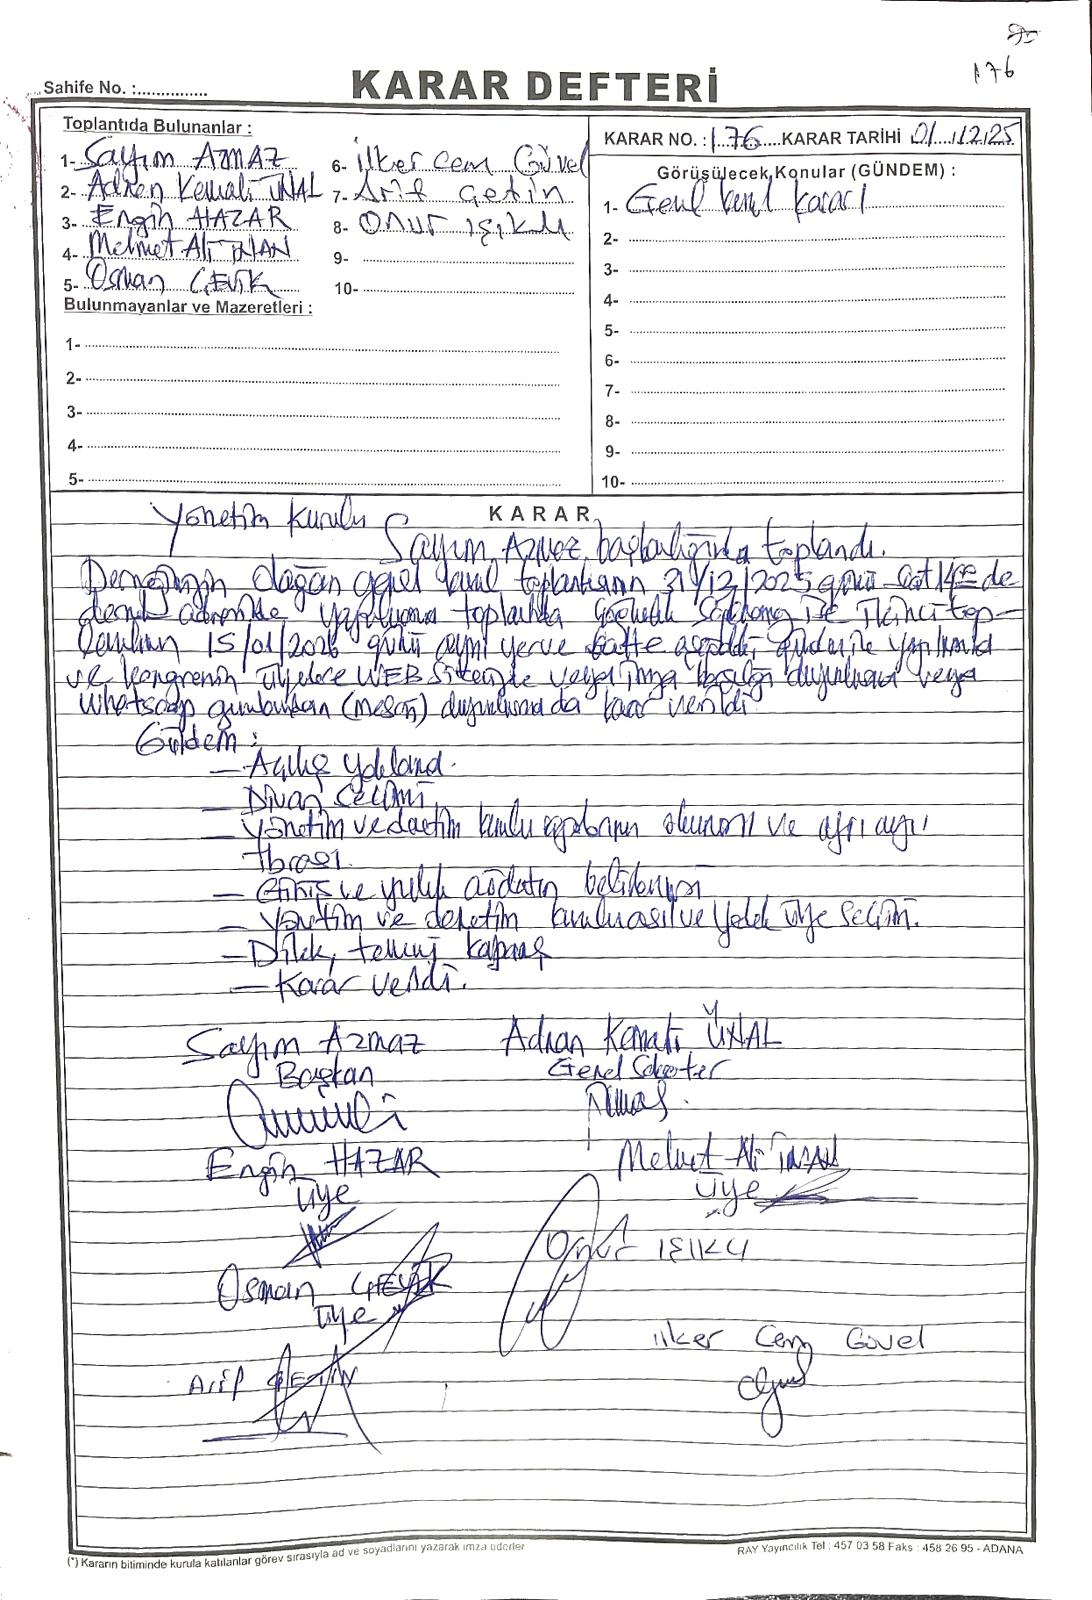 176
Sahife No. :...............
KARAR DEFTERİ
Toplantıda Bulunanlar :
1- Sayım AZMAZ
2- Adnan Kemali ÜNAL
3- Engin HAZAR
4- Mehmet Ali İNAN
5- Osman ÇEVİK
6- ilker cem Güvel
7- Arif Çetin
8- Onur ışıklı
9-
10-
Bulunmayanlar ve Mazeretleri :
1-
2-
3-
4-
5-
KARAR NO. : 176 KARAR TARİHİ 01/12/25
Görüşülecek Konular (GÜNDEM) :
1- Genel kurul kararı
2-
3-
4-
5-
6-
7-
8-
9-
10-
KARAR
Yönetim Kurulu
Sayım Azmaz başkanlığında toplandı.
Derneğin olağan genel kurul toplantısının 31/12/2025 günü saat 14 de
dernek adresinde toplantıda çoğunluk ile ikinci top-
lantının 15/01/2026 günü aynı yer ve saatte gündem ile yapılmasına
ve kongrenin üyelere WEB Sitesinde veya imza karşılığı duyurulması veya
Whatsapp gurubundan (mesaj) duyurulmasına da karar verildi.
Gündem :
— Açılış yoklama
— Divan Seçimi
— Yönetim ve denetim kurulu raporlarının okunması ve ayrı ayrı
ibrası.
— Giriş ve yıllık aidatın belirlenmesi
— Yönetim ve denetim kurulu asil ve Yedek üye seçimi.
— Dilek, temenni kapanış
— Karar verildi.
Sayım Azmaz Adnan Kemali ÜNAL
Başkan Genel Sekreter
Engin HAZAR Mehmet Ali İNAN
üye üye
Onur IŞIKLI
Osman ÇEVİK
üye
ilker Cem Güvel
Arif ÇETİN
(*) Kararın bitiminde kurula katılanlar görev sırasıyla ad ve soyadlarını yazarak imza ederler
RAY Yayıncılık Tel : 457 03 58 Faks : 458 26 95 - ADANA